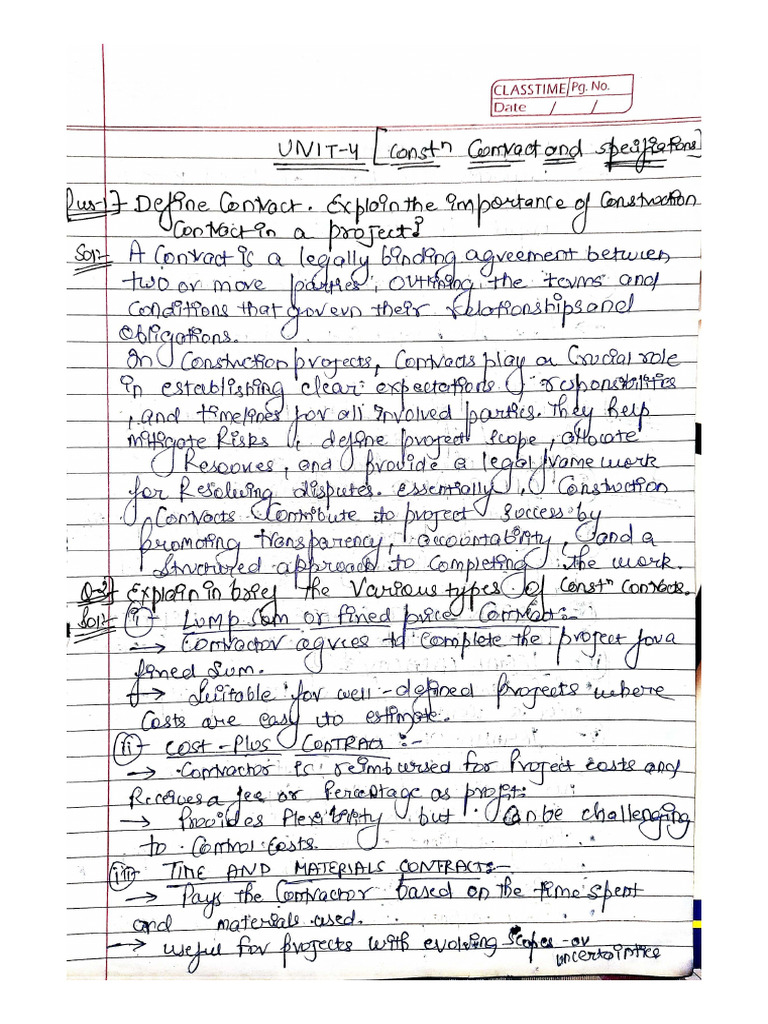 CLASSTIME Pg. No.
Date / /
UNIT-4 [Constn Contract and Specifications]
Qus-1 Define Contract. Explain the importance of Construction
Contract in a project?
Sol:- A Contract is a legally binding agreement between
two or more parties, outlining the terms and
Conditions that govern their relationships and
Obligations.
In Construction projects, Contracts play a Crucial role
in establishing clear expectations, responsibilities
, and timelines for all involved parties. They help
mitigate Risks, define project scope, allocate
Resources, and provide a legal framework
for Resolving disputes. essentially, Construction
Contracts Contribute to project success by
promoting transparency, accountability, and a
Structured approach to Completing the work.
Q-2 Explain in brief the Various types of Constn contracts.
Sol:- (i) Lump Sum or fined price Contract:-
→ Contractor agrees to complete the project for a
fined sum.
→ Suitable for well-defined projects where
Costs are easy to estimate.
(ii) COST-Plus CONTRACT:-
→ Contractor is reimbursed for Project costs and
Receives a fee or Percetage as profit.
→ Provides Flexibility but Can be challenging
to Control Costs.
(iii) TIME AND MATERIALS CONTRACTS:-
→ Pays the Contractor based on the time spent
and materials used.
→ useful for projects with evolving scopes or
uncertainties